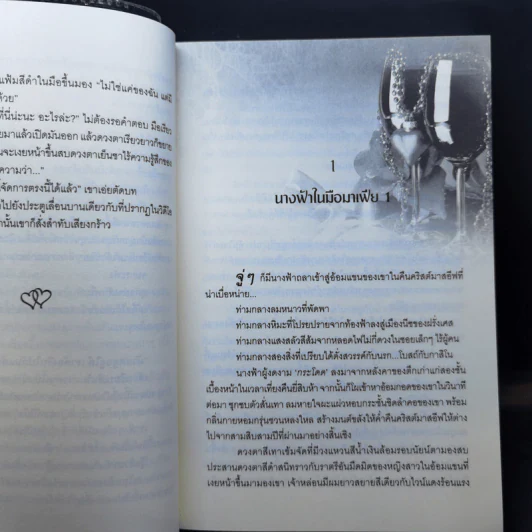 แฟ้มสีดำในมือขึ้นมอง “ไม่ใช่แค่ของฉัน แต่มี
ด้วย”
ที่นี่น่ะนะ อะไรล่ะ?” ไม่ต้องรอคำตอบ มือเรียว
มาแล้วเปิดมันออก แล้วดวงตาเรียวยาวก็ขยาย
จะเงยหน้าขึ้นสบดวงตาเย็นชาไร้ความรู้สึกของ
ความว่า...”
จัดการตรงนี้ได้แล้ว” เขาเอ่ยตัดบท
ไปยังประตูเลื่อนบานเดียวกับที่ปรากฏในวิดีโอ
นั้นเขาก็สั่งสำทับเสียงกร้าว
1
นางฟ้าในมือมาเฟีย 1
จู่ๆ ก็มีนางฟ้าถลาเข้าสู่อ้อมแขนของเขาในคืนคริสต์มาสอีฟที่
น่าเบื่อหน่าย...
ท่ามกลางลมหนาวที่พัดพา
ท่ามกลางหิมะที่โปรยปรายจากท้องฟ้าลงสู่เมืองนีซของฝรั่งเศส
ท่ามกลางแสงสลัวสีส้มจากหลอดไฟไม่กี่ดวงในซอยเล็กๆ ไร้ผู้คน
ท่ามกลางสองสิ่งที่เปรียบได้ดั่งสวรรค์กับนรก...โบสถ์กับกาสิโน
นางฟ้าผู้งดงาม ‘กระโดด’ ลงมาจากหลังคาของตึกเก่าแก่สองชั้น
เบื้องหน้าในเวลาเที่ยงคืนยี่สิบห้า จากนั้นก็โผเข้าหาอ้อมกอดของเขาในวินาที
ต่อมา ซุกซบตัวสั่นเทา ลมหายใจผะแผ่วหอบกระชั้นชิดลำคอของเขา พร้อม
กลิ่นกายหอมกรุ่นชวนหลงใหล สร้างมนต์ขลังให้ค่ำคืนคริสต์มาสอีฟให้ต่าง
ไปจากสามสิบสามปีที่ผ่านมาอย่างสิ้นเชิง
ดวงตาสีเทาเข้มจัดที่มีวงแหวนสีน้ำเงินล้อมรอบนัยน์ตามองสบ
ประสานดวงตาสีดำสนิทราวกับราตรีอันมืดมิดของหญิงสาวในอ้อมแขนที่
เงยหน้าขึ้นมามองเขา เจ้าหล่อนมีผมยาวสยายสีเดียวกับไวน์แดงร้อนแรง